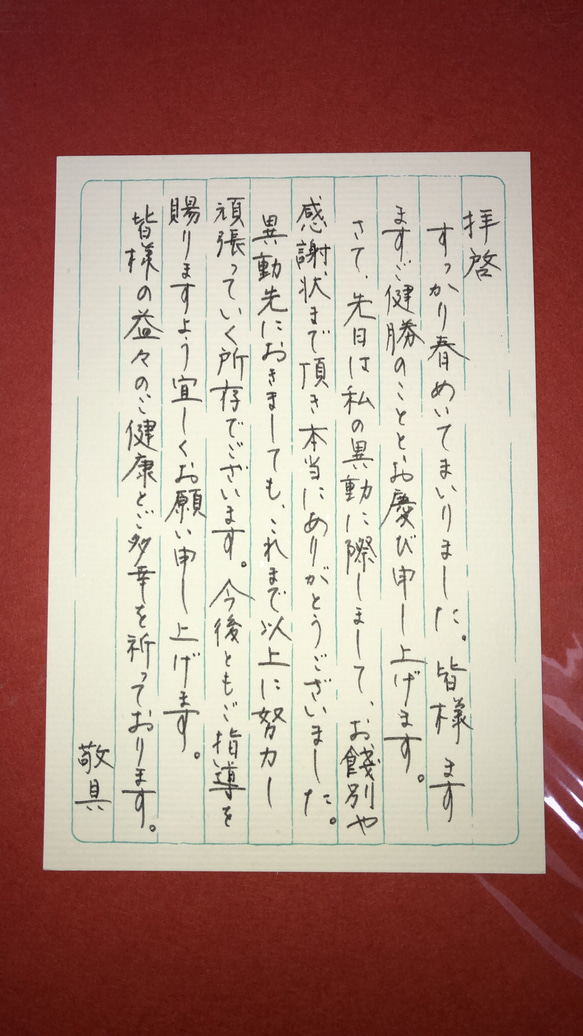 拝啓
すっかり春めいてまいりました。皆様ます
ますご健勝のこととお慶び申し上げます。
さて、先日は私の異動に際しまして、お餞別や
感謝状まで頂き本当にありがとうございました。
異動先におきましても、これまで以上に努力し
頑張っていく所存でございます。今後ともご指導を
賜りますよう宜しくお願い申し上げます。
皆様の益々のご健康とご多幸を祈っております。
敬具